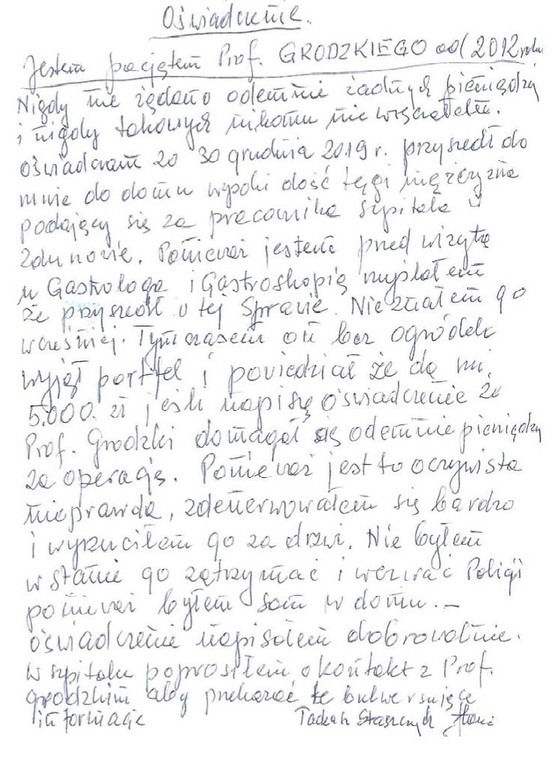 Oświadczenie.
Jestem pacjętem Prof. GRODZKIEGO od 2012 roku
Nigdy nie rządano odemnie żadnych pieniędzy
i nigdy takowych nikomu nie wręczałem.
oświadczam że 30 grudnia 2019 r. przyszedł do
mnie do domu wysoki dość tęgi mężczyzna
podający się za pracownika szpitala w
Zdunowie. Ponieważ jestem przed wizytą
u Gastrologa i Gastroskopią myślałem
że przyszedł w tej sprawie. Nie znałem go
wcześniej. Tymczasem on bez ogródek
wyjął portfel i powiedział że da mi
5.000. zł jeśli napiszę oświadczenie że
Prof. Grodzki domagał się odemnie pieniędzy
za operację. Ponieważ jest to oczywista
nieprawda, zdenerwowałem się bardzo
i wyrzuciłem go za drzwi. Nie byłem
w stanie go zatrzymać i wezwać Policji
ponieważ byłem sam w domu. –
oświadczenie napisałem dobrowolnie.
W szpitalu poprosiłem o kontakt z Prof.
Grodzkim aby przekazać te bulwersujące
informacje Tadeusz